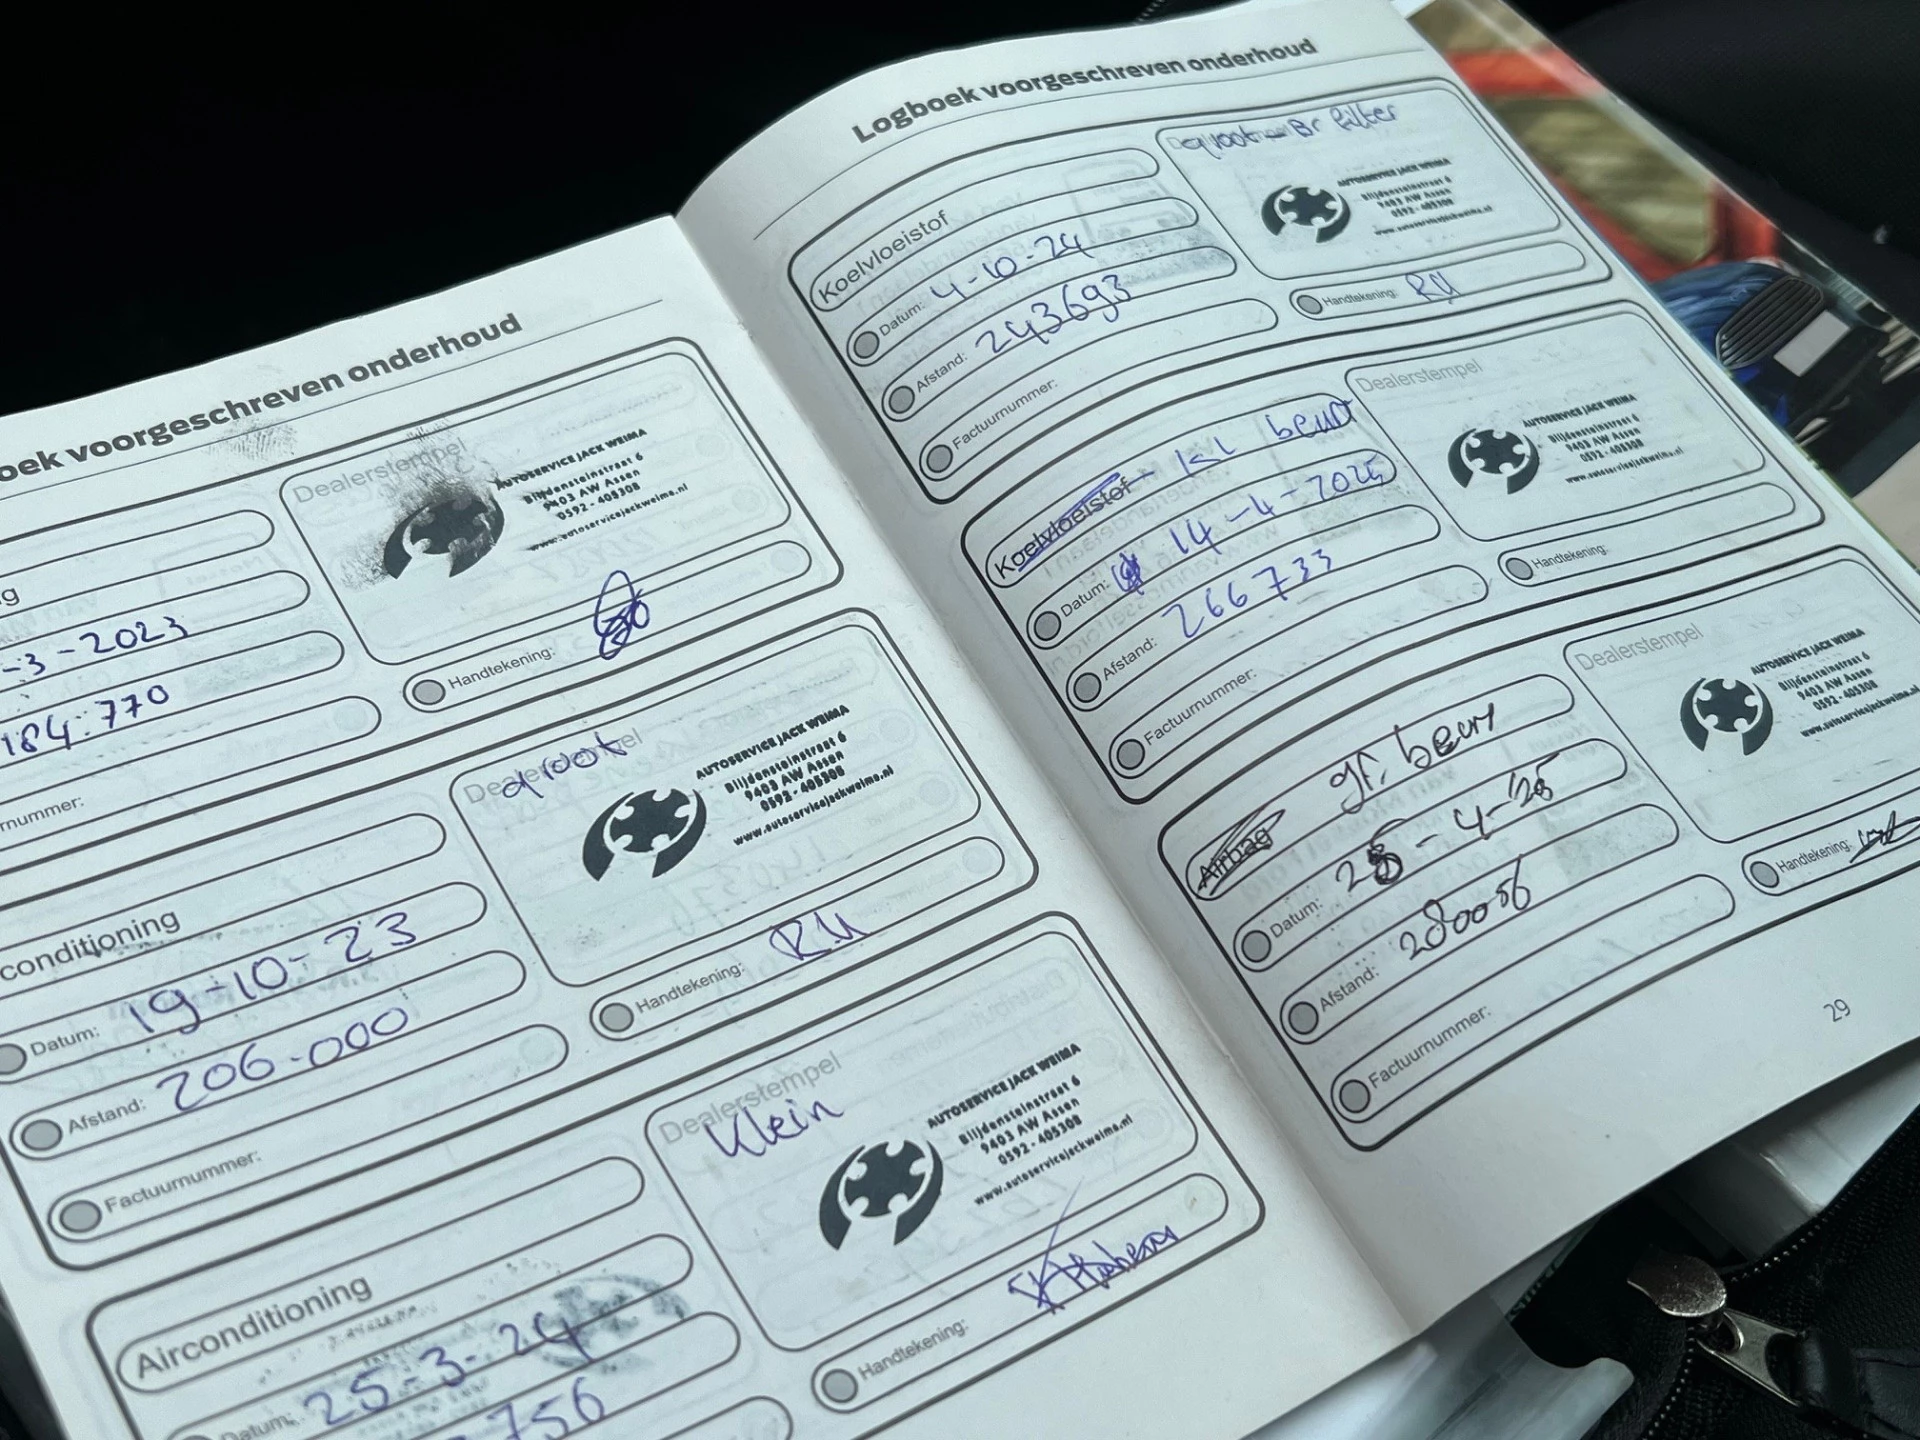 oek voorgeschreven onderhoud
g
-3-2023
184.770
rnummer:
Dealerstempel
AUTOSERVICE JACK WEIMA
Blijdensteinstraat 6
9403 AW Assen
0592 - 405308
www.autoservicejackweima.nl
Handtekening:
conditioning
Datum: 19-10-23
Afstand: 206.000
Factuurnummer:
Dealerstempel
groot
AUTOSERVICE JACK WEIMA
Blijdensteinstraat 6
9403 AW Assen
0592 - 405308
www.autoservicejackweima.nl
Handtekening: RM
Airconditioning
Datum: 25-3-24
756
Dealerstempel
Klein
AUTOSERVICE JACK WEIMA
Blijdensteinstraat 6
9403 AW Assen
0592 - 405308
www.autoservicejackweima.nl
Handtekening:
Logboek voorgeschreven onderhoud
Koelvloeistof
Datum: 4-10-24
Afstand: 243693
Factuurnummer:
groot - Br filter
AUTOSERVICE JACK WEIMA
Blijdensteinstraat 6
9403 AW Assen
0592 - 405308
www.autoservicejackweima.nl
Handtekening: RM
Koelvloeistof - kl beurt
Datum: 14-4-2025
Afstand: 266733
Factuurnummer:
Dealerstempel
AUTOSERVICE JACK WEIMA
Blijdensteinstraat 6
9403 AW Assen
0592 - 405308
www.autoservicejackweima.nl
Handtekening:
Airbag gr. beurt
Datum:
Afstand: 280056
Factuurnummer:
Dealerstempel
AUTOSERVICE JACK WEIMA
Blijdensteinstraat 6
9403 AW Assen
0592 - 405308
www.autoservicejackweima.nl
Handtekening:
29